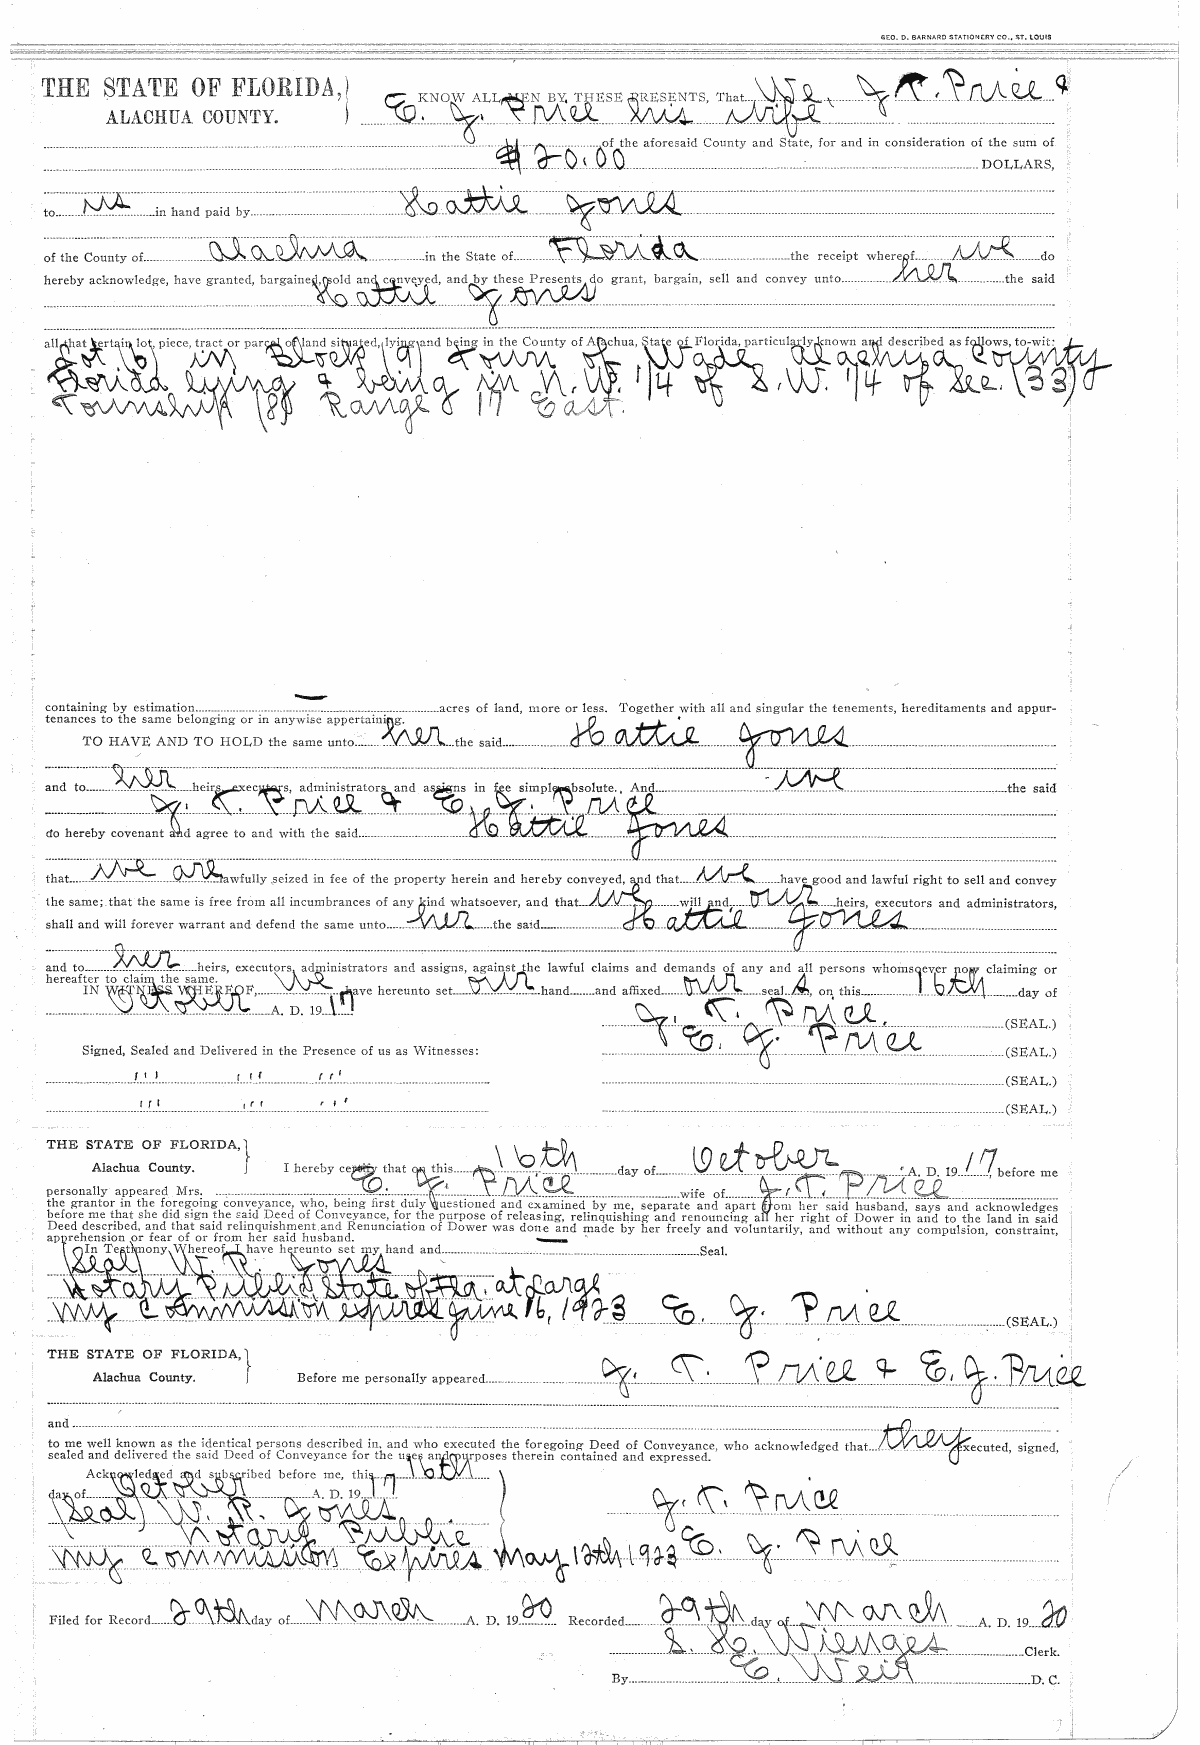 GEO. D. BARNARD STATIONERY CO., ST. LOUIS
THE STATE OF FLORIDA,
ALACHUA COUNTY.
KNOW ALL MEN BY THESE PRESENTS, That We, J. T. Price &
E. J. Price his wife
of the aforesaid County and State, for and in consideration of the sum of
$20.00 DOLLARS,
to us in hand paid by Hattie Jones
of the County of Alachua in the State of Florida the receipt whereof we do
hereby acknowledge, have granted, bargained, sold and conveyed, and by these Presents do grant, bargain, sell and convey unto her the said
Hattie Jones
all that certain lot, piece, tract or parcel of land situated, lying and being in the County of Alachua, State of Florida, particularly known and described as follows, to-wit:
Lot (6) in Block (9) Town of Wade Alachua County
Florida lying & being in N.W. 1/4 of S.W. 1/4 of Sec. (33)
Township (8) Range 17 East.
containing by estimation — acres of land, more or less. Together with all and singular the tenements, hereditaments and appur-
tenances to the same belonging or in anywise appertaining.
TO HAVE AND TO HOLD the same unto her the said Hattie Jones
and to her heirs, executors, administrators and assigns in fee simple absolute., And we the said
J. T. Price & E. J. Price
do hereby covenant and agree to and with the said Hattie Jones
that we are lawfully seized in fee of the property herein and hereby conveyed, and that we have good and lawful right to sell and convey
the same; that the same is free from all incumbrances of any kind whatsoever, and that we will and our heirs, executors and administrators,
shall and will forever warrant and defend the same unto her the said Hattie Jones
and to her heirs, executors, administrators and assigns, against the lawful claims and demands of any and all persons whomsoever now claiming or
hereafter to claim the same.
IN WITNESS WHEREOF, We have hereunto set our hand and affixed our seal s, on this 16th day of
October A. D. 1917
J. T. Price. (SEAL.)
E. J. Price (SEAL.)
Signed, Sealed and Delivered in the Presence of us as Witnesses:
''' ''' ''' (SEAL.)
''' ''' ''' (SEAL.)
THE STATE OF FLORIDA,
Alachua County.
I hereby certify that on this 16th day of October A. D. 1917 before me
personally appeared Mrs. E. J. Price wife of J. T. Price
the grantor in the foregoing conveyance, who, being first duly questioned and examined by me, separate and apart from her said husband, says and acknowledges
before me that she did sign the said Deed of Conveyance, for the purpose of releasing, relinquishing and renouncing all her right of Dower in and to the land in said
Deed described, and that said relinquishment and Renunciation of Dower was done and made by her freely and voluntarily, and without any compulsion, constraint,
apprehension or fear of or from her said husband.
In Testimony Whereof, I have hereunto set my hand and — Seal.
(Seal) W. R. Jones
Notary Public State of Fla. at Large
My Commission expires June 16, 1923 E. J. Price (SEAL.)
THE STATE OF FLORIDA,
Alachua County.
Before me personally appeared J. T. Price & E. J. Price
and
to me well known as the identical persons described in, and who executed the foregoing Deed of Conveyance, who acknowledged that they executed, signed,
sealed and delivered the said Deed of Conveyance for the uses and purposes therein contained and expressed.
Acknowledged and subscribed before me, this 16th
day of October A. D. 1917
(Seal) W. R. Jones J. T. Price
Notary Public
My Commission Expires May 12th 1923 E. J. Price
Filed for Record 29th day of March A. D. 1920 Recorded 29th day of March A. D. 1920
S. H. Wienges Clerk.
By E. Weir D. C.